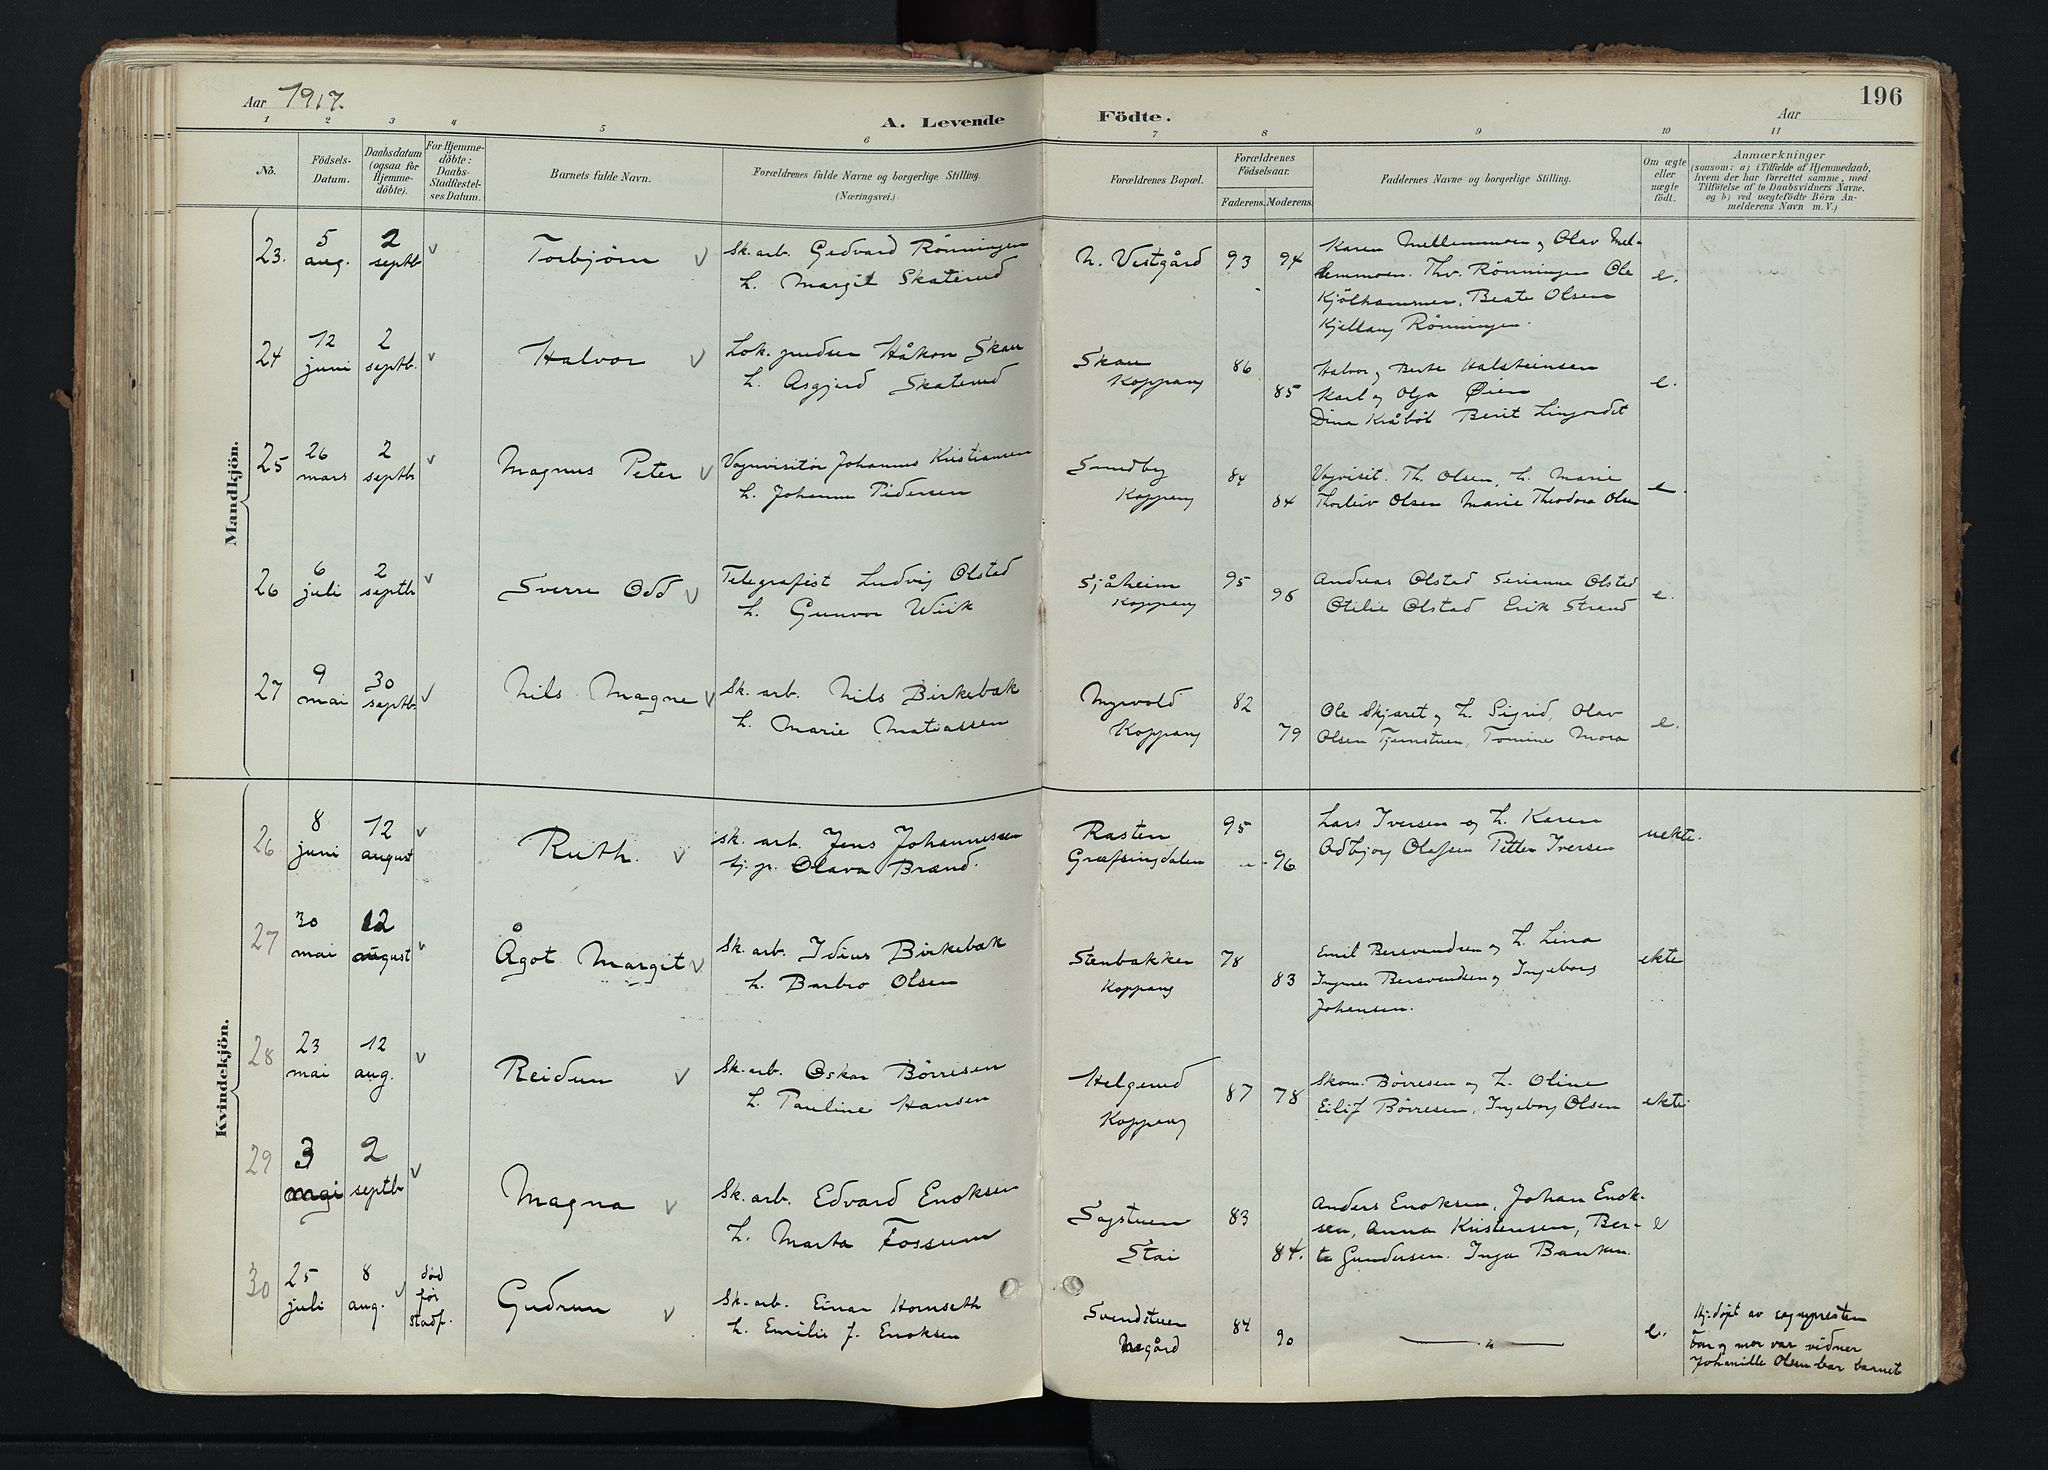 Aar 1917.
A. Levende
Födte.
Aar
196
1 2 3 4 5 6 7 8 9 10 11
No.
Födsels-Datum.
Daabsdatum (ogsaa for Hjemmedöbte).
For Hjemmedöbte: Daabs-Stadfæstelses Datum.
Barnets fulde Navn.
Forældrenes fulde Navne og borgerlige Stilling.
(Næringsvei.)
Forældrenes Bopæl.
Forældrenes Födselsaar.
Faderens. Moderens.
Faddernes Navne og borgerlige Stilling.
Om ægte eller uægte födt.
Anmærkninger
(saasom: a) i Tilfælde af Hjemmedaab,
hvem der har forrettet samme, med
Tilföielse af to Daabsvidners Navne,
og b) ved uægtefödte Börn An-
melderens Navn m. V.)
Mandkjön.
23. 5 aug. 2 septb v Torbjörn v Sk. arb. Gedvard Rönningen
h. Margit Skaterud
N. Vestgård 93 94
Karen Mellemmoen og Olav Mel-
lemmoen. Thv. Rönningen Ole
Kjölhammer, Beate Olsen
Kjellaug Rönningen.
e.
24 12 juni 2 septb. v Halvor v Lok. pudser Håkon Skau
h. Asgjerd Skaterud
Skau Koppang 86 85
Halvor og Berte Halsteinsen
Karl og Olga Øien
Dina Kråböl Berit Linjordet
e.
25 26 mars 2 septb v Magnus Peter v Vognvisitør Johannes Kristiansen
h. Johanne Pedersen
Sundby Koppang 84 84
Vognvisit. Th. Olsen, h. Marie
Thorleiv Olsen Marie Theodora Olsen
e.
26 6 juli 2 septb v Sverre Odd v Telegrafist Ludvig Olstad
h. Gunvor Wiik
Sjåheim Koppang 95 96
Andreas Olstad Serianna Olstad
Otilie Olstad Erik Strand
e.
27 9 mai 30 septb. v Nils Magne v Sk. arb. Nils Birkebæk
h. Marie Matiassen
Myrvold Koppang 82 79
Ole Skjæret og h. Sigrid, Olav
Olsen Tjernstuen, Tomine Mora
e.
Kvindekjön.
26 8 juni 12 august v Ruth. v sk. arb. Jens Johannessen
tj. p. Olava Brænd.
Rasten
Græfsingdalen 95 96
Lars Iversen og h. Karen
Odbjørg Olafsen Petter Iversen
uekte.
27 30 mai 12 august v Ågot Margit v Sk. arb. Idius Birkebæk
h. Barbro Olsen
Stenbakken Koppang 78 83
Emil Bersvendsen og h. Lina
Ingvar Bersvendsen og Ingeborg
Johansen.
ekte
28 23 mai 12 aug. v Reidun v Sk. arb. Oskar Börresen
h. Pauline Hansen
Helgerud Koppang 87 78
Skom. Börresen og h. Oline
Eilif Börresen, Ingeborg Olsen
ekte
29 3 mai 2 septb v Magna v Sk. arb. Edvard Enoksen
h. Marta Fossum
Sagstuen Stai 83 84.
Anders Enoksen, Johan Enok-
sen, Anna Kristensen, Ber-
te Gundersen. Inga Banken.
e
30 25 juli 8 aug. v død før stadf. Gudrun v Sk. arb. Einar Hornseth
h. Emilie J. Enoksen
Svendstuen Negård 84 90
e.
Hj. døpt av sognepresten
Far og mor var vidner
Johanille Olsen bar barnet